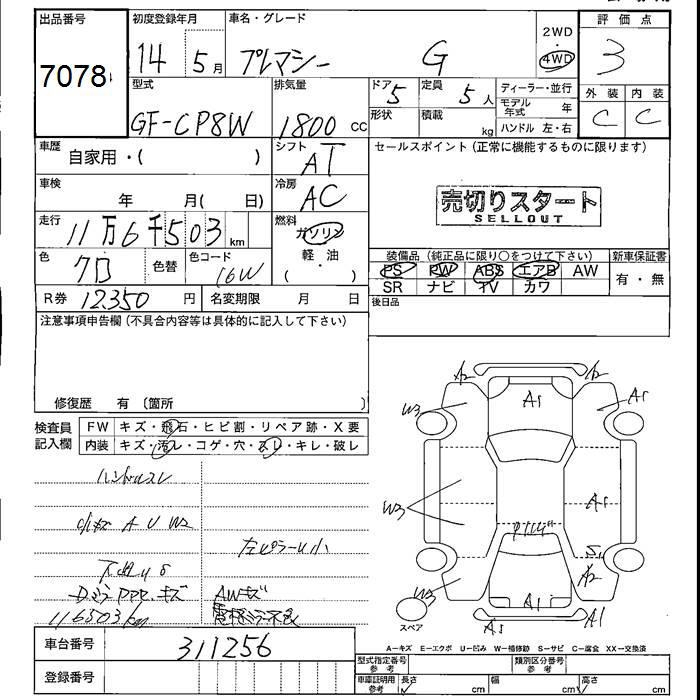 出品番号 初度登録年月 車名・グレード 2WD 評価点
7078 14 5月 プレマシー G 4WD 3
型式 排気量 ドア 5 定員 5人 ディーラー・並行 外装 内装
GF-CP8W 1800 CC 形状 積載 kg モデル年式 年 C C
ハンドル 左・右
車歴 自家用・( ) シフト AT セールスポイント(正常に機能するものに限ります)
車検 年 月( 日) 冷房 AC 売切りスタート
SELLOUT
走行 11万6千503km 燃料 ガソリン
軽・油
( )
色 色替 色コード 16W 装備品(純正品に限り○をつけて下さい) 新車保証書
PS PW ABS エアB AW 有・無
SR ナビ TV カワ
R券 12350円 名変期限 月 日 後日品
注意事項申告欄(不具合内容等は具体的に記入して下さい)
修復歴 有 〔箇所 〕
検査員 FW キズ・飛石・ヒビ割・リペア跡・X要
記入欄 内装 キズ・汚レ・コゲ・穴・スレ・キレ・破レ
ハンドルスレ
小キズ A U W2
Dミラー キズ AWキズ
116503km 電格ミラー不良
A2 A2
W3 A1 A1
W3 A1
S1
W3 A2
A1 A1
スペア A1
車台番号 311256
登録番号
A−キズ E−エクボ U−凹み W−補修跡 S−サビ C−腐食 XX−交換済
型式指定番号 参考 類別区分番号 参考
車庫証明用 参考 長さ cm 幅 cm 高さ cm